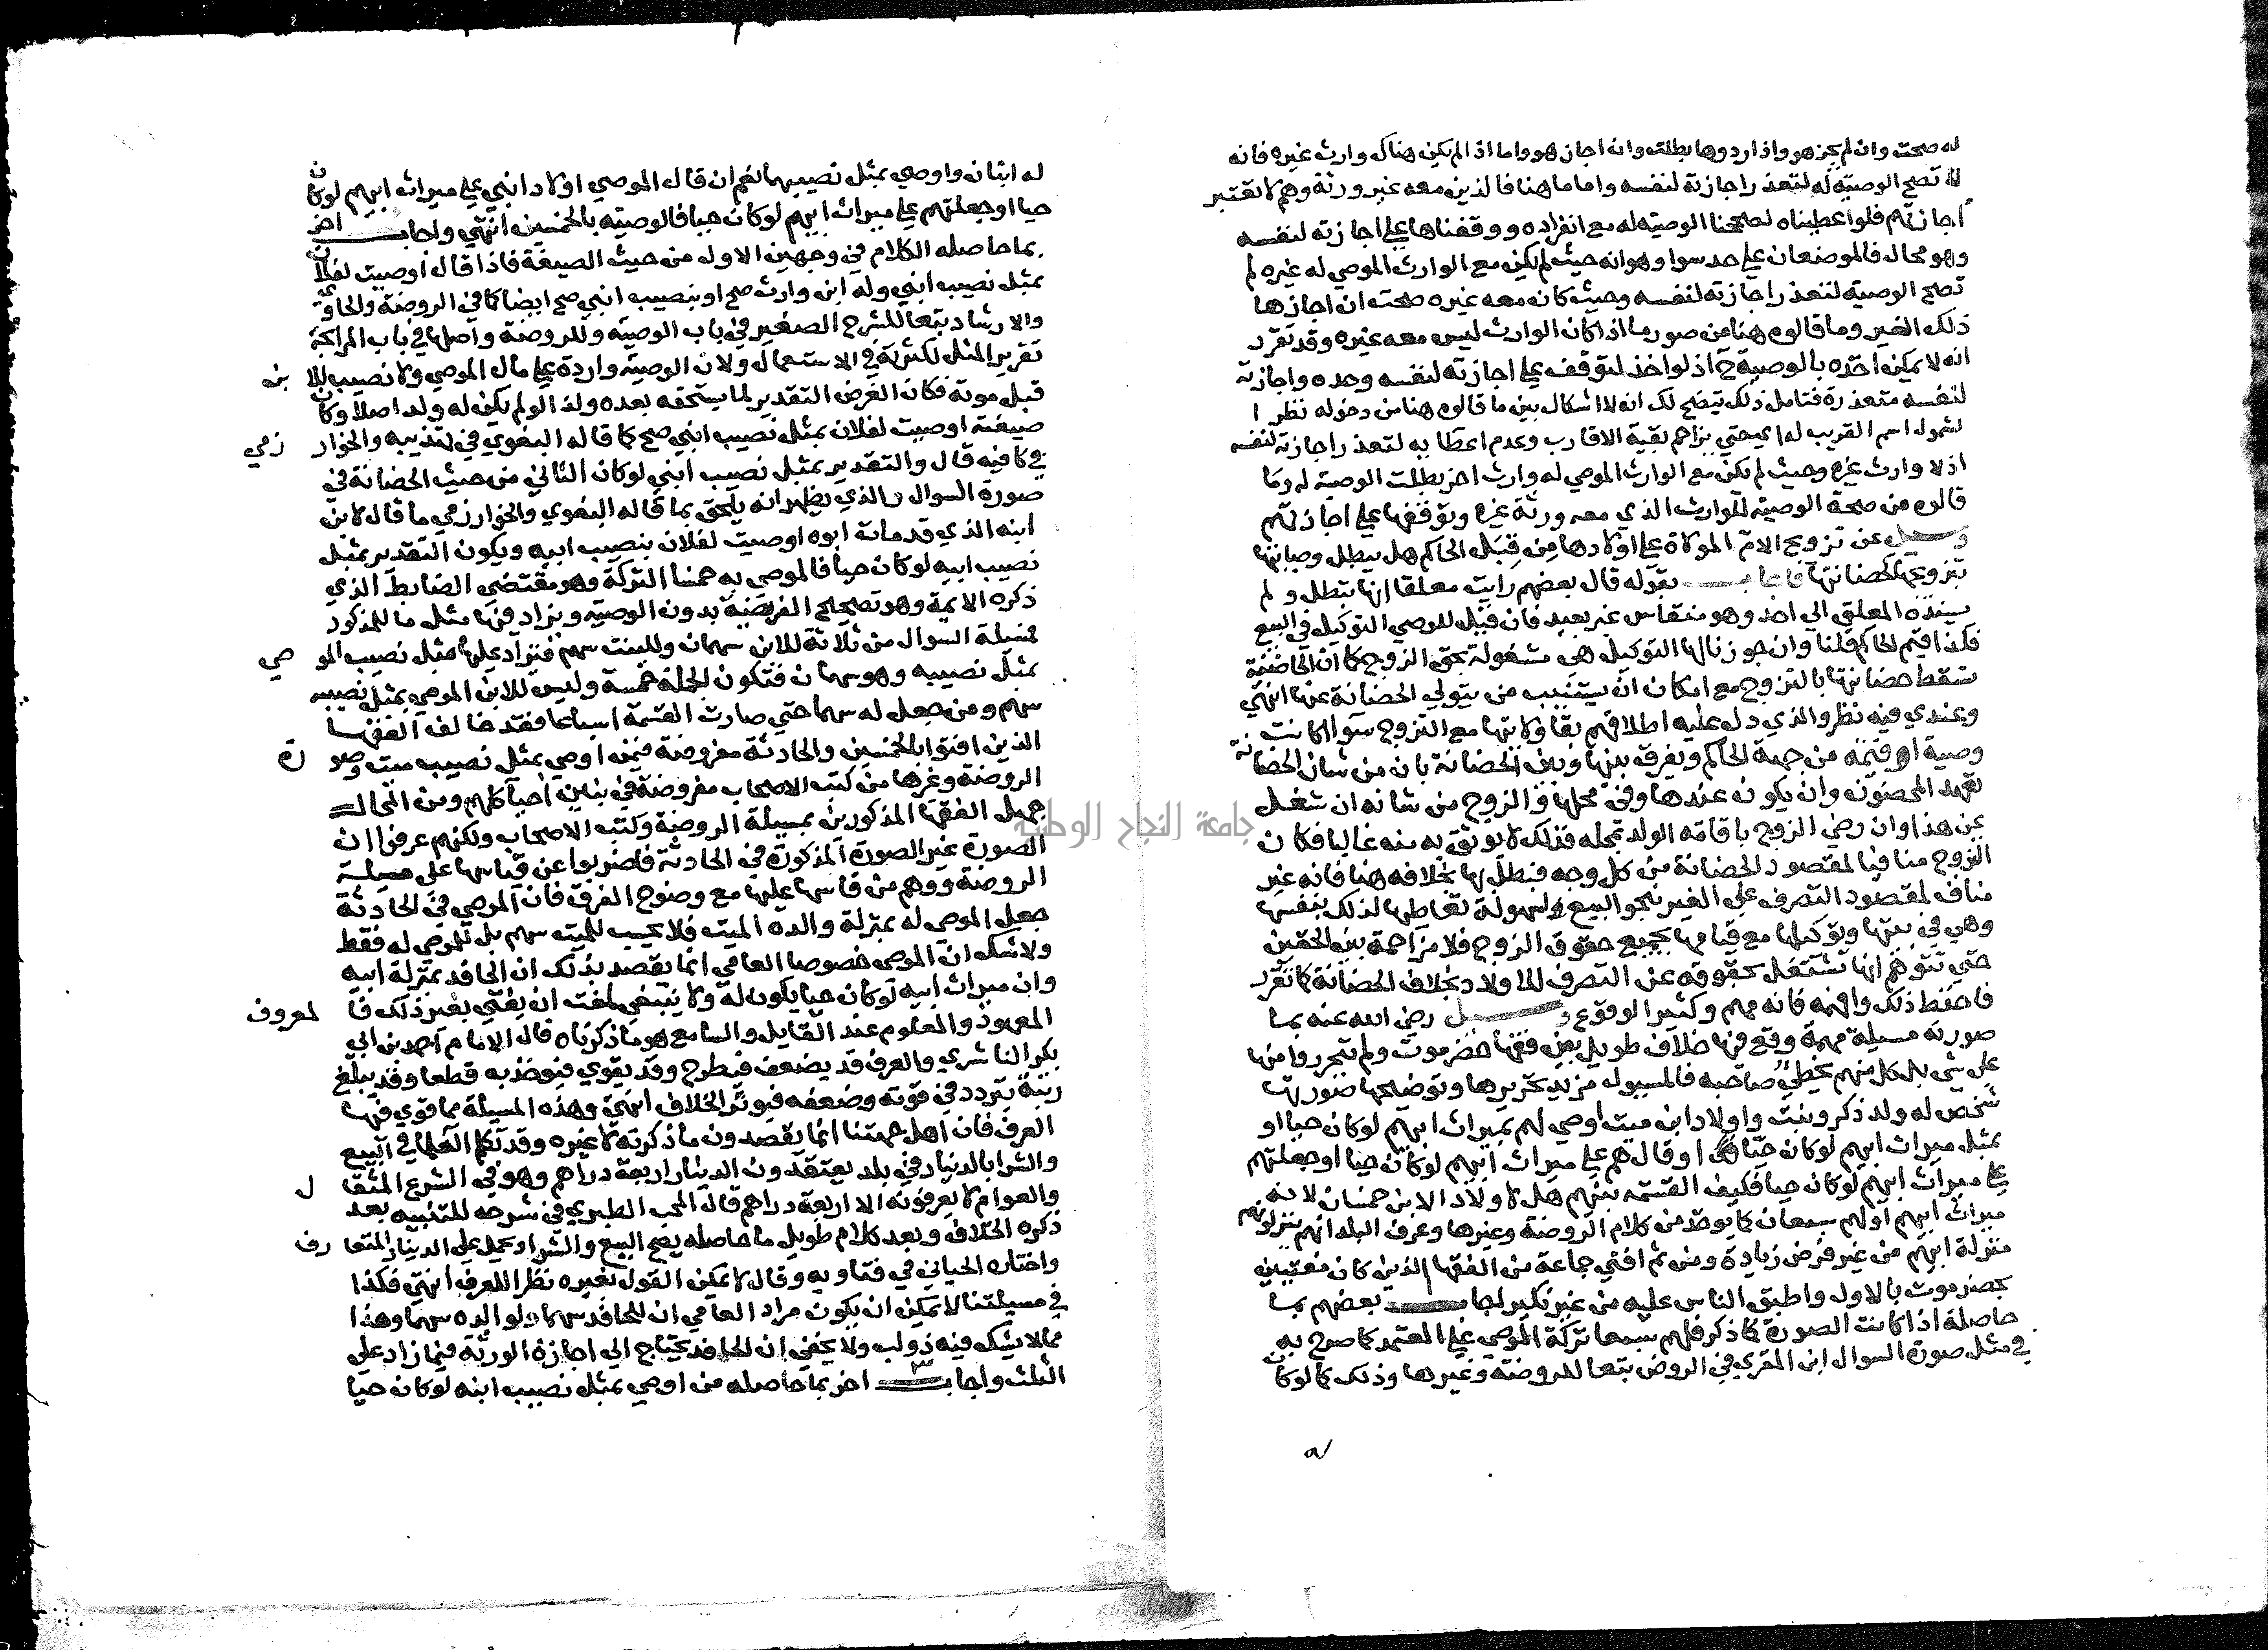 له صحت وان لم يجز هو واذا ردوها بطلت وان اجاز هو واما اذا لم يكن هناك وارث غيره فانه
لا تصح الوصية له لتعذر اجازته لنفسه واما ما هنا فالذين معه غير ورثة وهم لا تعتبر
اجازتهم فلو اعطيناه لصححنا الوصية له مع انفراده ووقفناها على اجازته لنفسه
وهو محال فالموضعان على حد سوا وهو انه حيث لم يكن مع الوارث الموصي له غيره لم
تصح الوصية لتعذر اجازته لنفسه وحيث كان معه غيره صحت ان اجازها
ذلك الغير وما قالوه هنا من صور ما اذا كان الوارث ليس معه غيره وقد تقرر
انه لا يمكن اخذه بالوصية ح اذ لو اخذ لتوقف على اجازته لنفسه وحده واجازته
لنفسه متعذرة فتامل ذلك يتضح لك انه لا اشكال بين ما قالوه هنا من دخوله نظرا
لشمول اسم القريب له اي حتي يزاحم بقية الاقارب وعدم اعطا به لتعذر اجازته لنفسه
اذ لا وارث غيره وحيث لم يكن مع الوارث الموصي له وارث اخر بطلت الوصية له وما
قالوه من صحة الوصية للوارث الذي معه ورثة غيره وتوقفها على اجازتهم
وسيل عن تزويج الام المولاة على اولادها من قبل الحاكم هل يبطل وصايتها
بتزويجها كحضانتها فاجاب بقوله قال بعضهم رايت معلقا انها تبطل ولم
يسنده المعلق الي احد وهو منقاس غير بعيد فان قيل للوصي التوكيل في البيع
فكذا قيم الحاكم قلنا وان جوزنا لها التوكيل هي مشغولة بحق الزوج كما ان الحاضنة
تسقط حضانتها بالتزوج مع امكان ان يستنيب من يتولي الحضانة عنها انتهي
وعندي فيه نظر والذي دل عليه اطلاقهم بقا ولايتها مع التزوج سوا اكانت
وصية او قيمة من جهة الحاكم ويفرق بينها وبين الحضانة بان من شان الحضانة
تعهد المحضون وان يكون عندها وفي محلها والزوج من شانه ان يشغل
عن هذا وان رضي الزوج باقامة الولد بمحله فذلك لا يوثق به منه غالبا فكان
الزوج منافيا لمقصود الحضانة من كل وجه فبطل بها بخلافه هنا فانه غير
مناف لمقصود التصرف على الغير بنحو البيع لسهولة تعاطيها لذلك بنفسها
وهي في بيتها وتوكيلها مع قيامها بجميع حقوق الزوج فلا مزاحمة بين الحقين
حتي يتوهم انها تشتغل بحقوقه عن التصرف للاولاد بخلاف الحضانة كما تقرر
فاحفظ ذلك وافهمه فانه مهم وكثير الوقوع وسيل رضي الله عنه بما
صورته مسيلة مهمة وقع فيها خلاف طويل بين فقها حضرموت ولم يتحرروا منها
على شي بل كل منهم يخطي صاحبه فالمسيول مزيد تحريرها وتوضيحها صورتها
شخص له ولد ذكر وبنت واولاد ابن ميت اوصي لهم بميراث ابيهم لو كان حيا او
بمثل ميراث ابيهم لو كان حيا او قال هم على ميراث ابيهم لو كان حيا او جعلتهم
على ميراث ابيهم لو كان حيا فكيف القسمة بينهم هل لاولاد الابن خمسان لانه
ميراث ابيهم او لهم سبعان كما يوخذ من كلام الروضة وغيرها وعرف البلد انهم ينزلونهم
منزلة ابيهم من غير فرض زيادة ومن ثم افتي جماعة من الفقها الذين كان مفتيين
بحضرموت بالاول واطبق الناس عليه من غير نكير اجاب بعضهم بما
حاصله اذا كانت الصورة كما ذكر فلهم سبعا تركة الموصي على المعتمد كما صرح به
في مثل صورة السوال ابن المقري في الروض تبعا للروضة وغيرها وذلك كما لو كان
له ابنان واوصي بمثل نصيبهما نعم ان قال الموصي اولاد ابني على ميراث ابيهم لو كان
حيا او جعلتهم على ميراث ابيهم لو كان حيا فالوصية بالخمسين انتهي واجاب اخر
بما حاصله الكلام في وجهين الاول من حيث الصيغة فاذا قال اوصيت لفلان
بمثل نصيب ابني وله ابن وارث صح او بنصيب ابني صح ايضا كما في الروضة والحاوي
والارشاد تبعا للشرح الصغير في باب الوصية وللروضة واصلها في باب المرابحة
تقرير المثل لكثرته في الاستعمال ولان الوصية واردة على مال الموصي ولا نصيب للابن
قبل موته فكان الغرض التقدير لما يستحقه بعده ولذا لو لم يكن له ولد اصلا وكان
صيغته اوصيت لفلان بمثل نصيب ابني صح كما قاله البغوي في تهذيبه والخوارزمي
في كافيه قال والتقدير بمثل نصيب ابني لو كان الثاني من حيث الحضانة في
صورة السوال والذي يظهر انه يلحق بما قاله البغوي والخوارزمي ما قال لابن
ابنه الذي قد مات ابوه اوصيت لفلان بنصيب ابيه ويكون التقدير بمثل
نصيب ابيه لو كان حيا فالموصي به خمسا التركة وهو مقتضي الضابط الذي
ذكره الايمة وهو تصحيح الفريضة بدون الوصية ويزاد فيها مثل ما للمذكور
فمسيلة السوال من ثلاثة للابن سهمان وللبنت سهم فتزاد عليها مثل نصيب الموصي
بمثل نصيبه وهو سهمان فتكون الجملة خمسة وليس للابن الموصي بمثل نصيبه
سهم ومن جعل له سهما حتي صارت القسمة اسباعا فقد خالف الفقها
الذين افتوا بالخمسين والحادثة مفروضة فيمن اوصي بمثل نصيب ميت وصورة
الروضة وغيرها من كتب الاصحاب مفروضة في بنين احيا كلهم ومن المحال
جهل الفقها المذكورين بمسيلة الروضة وكتب الاصحاب ولكنهم عرفوا ان
الصورة غير الصورة المذكورة في الحادثة فاضربوا عن قياسها على مسيلة
الروضة ووهم من قاسها عليها مع وضوح الفرق فان الموصي في الحادثة
جعل الموصي له بمنزلة والده الميت فلا يحسب للميت سهم بل للموصي له فقط
ولا شك ان الموصي خصوصا العامي انما يقصد بذلك ان الحافد بمنزلة ابيه
وان ميراث ابيه لو كان حيا يكون له ولا ينبغي لمفت ان يفتي بغير ذلك فالمعروف
المعهود والمعلوم عند القايل والسامع هو ما ذكرناه قال الامام احمد بن ابي
بكر الناشري والعرف قد يضعف فيطرح وقد يقوي فيوخذ به قطعا وقد يبلغ
رتبة تتردد في قوته وضعفه فيوثر الخلاف انتهي وهذه المسيلة مما قوي فيها
العرف فان اهل جهتنا انما يقصدون ما ذكرته لا غيره وقد تكلم العلما في البيع
والشرا بالدينار في بلد يعتقدون الدينار اربعة دراهم وهو في الشرع المثقال
والعوام لا يعرفونه الا اربعة دراهم قال المحب الطبري في شرحه للتنبيه بعد
ذكره الخلاف وبعد كلام طويل ما حاصله يصح البيع والشرا ويحمل على الدينار المتعارف
واختاره الحباني في فتاويه وقال لا يمكن القول بغيره نظرا للعرف انتهي فكذا
في مسيلتنا لا يمكن ان يكون مراد العامي ان للحافد سهما ولوالده سهما وهذا
مما لا يشك فيه ذو لب ولا يخفي ان الحافد يحتاج الي اجازة الورثة فيما زاد على
الثلث واجاب اخر بما حاصله من اوصي بمثل نصيب ابنه لو كان حيا
جامعة النجاح الوطنية